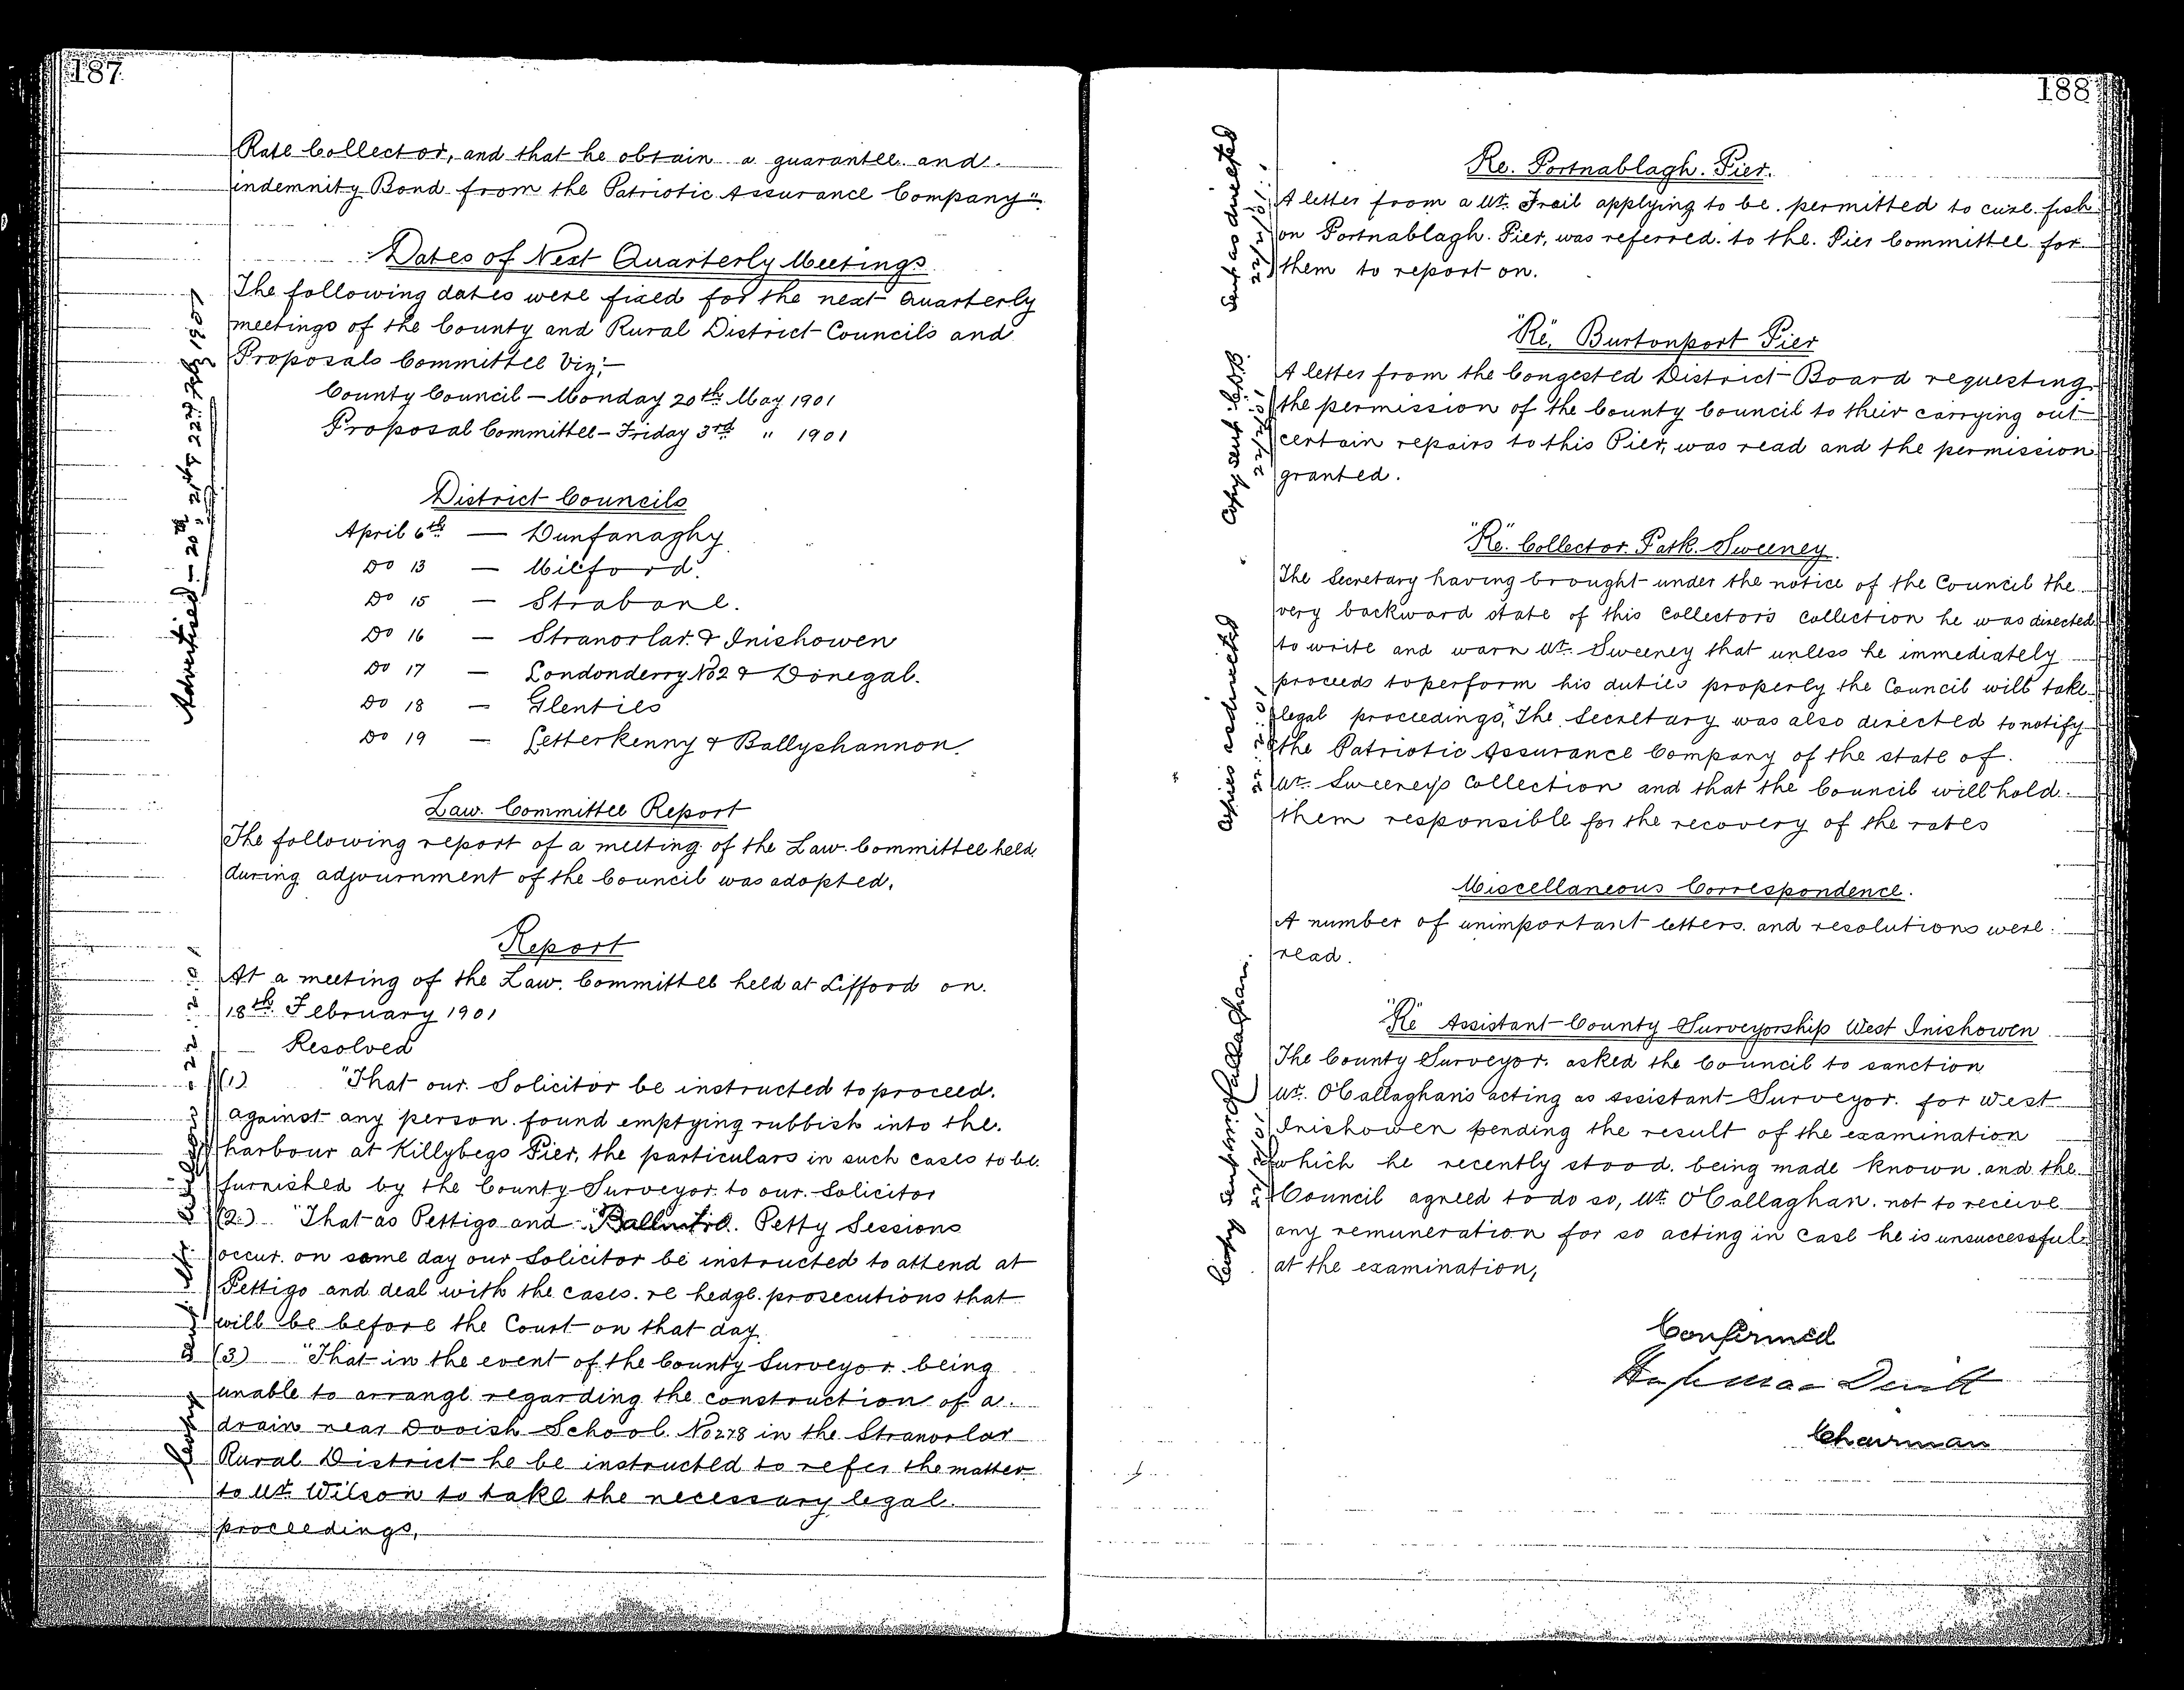 187
Rate Collector, and that he obtain a guarantee and
indemnity Bond from the Patriotic Assurance Company"
Dates of Next Quarterly Meetings
The following dates were fixed for the next Quarterly
meetings of the County and Rural District Councils and
Proposals Committee Viz:—
County Council — Monday 20th May 1901
Proposal Committee — Friday 3rd " 1901
District Councils
April 6th — Dunfanaghy
Do 13 — Milford.
Do 15 — Strabane.
Do 16 — Stranorlar & Inishowen
Do 17 — Londonderry No 2 & Donegal.
Do 18 — Glenties
Do 19 — Letterkenny & Ballyshannon.
Advertised — 20th, 21st & 22nd Feby 1901
Law Committee Report
The following report of a meeting of the Law Committee held
during adjournment of the Council was adopted.
Report
At a meeting of the Law Committee held at Lifford on
18th February 1901
Resolved
(1) "That our Solicitor be instructed to proceed
against any person found emptying rubbish into the
harbour at Killybegs Pier, the particulars in such cases to be
furnished by the County Surveyor to our Solicitor
(2) "That as Pettigo and Ballintra Petty Sessions
occur on same day our Solicitor be instructed to attend at
Pettigo and deal with the cases re hedge prosecutions that
will be before the Court on that day.
(3) "That in the event of the County Surveyor being
unable to arrange regarding the construction of a
drain near Dooish School No 278 in the Stranorlar
Rural District he be instructed to refer the matter
to Mr. Wilson to take the necessary legal
proceedings,
188
Re. Portnablagh. Pier.
A letter from a Mr. Frail applying to be permitted to cure fish
on Portnablagh Pier, was referred to the Pier Committee for
them to report on.
Sent as directed
22/2/01
"Re". Burtonport Pier
A letter from the Congested District Board requesting
the permission of the County Council to their carrying out
certain repairs to this Pier, was read and the permission
granted.
Copy sent C.D.B.
22/2/01
"Re". Collector Patk. Sweeney.
The Secretary having brought under the notice of the Council the
very backward state of this Collectors collection he was directed
to write and warn Mr. Sweeney that unless he immediately
proceeds to perform his duties properly the Council will take
legal proceedings, The Secretary was also directed to notify
the Patriotic Assurance Company of the state of
Mr. Sweeney's Collection and that the Council will hold
them responsible for the recovery of the rates
Copies as directed
22.2.01
Miscellaneous Correspondence.
A number of unimportant letters and resolutions were
read.
"Re" Assistant County Surveyorship West Inishowen
The County Surveyor asked the Council to sanction
Mr. O'Callaghan's acting as Assistant Surveyor for West
Inishowen pending the result of the examination
which he recently stood being made known and the
Council agreed to do so, Mr. O'Callaghan not to receive
any remuneration for so acting in case he is unsuccessful
at the examination,
Copy sent Mr. O'Callaghan.
22/2/01
Confirmed
Chairman